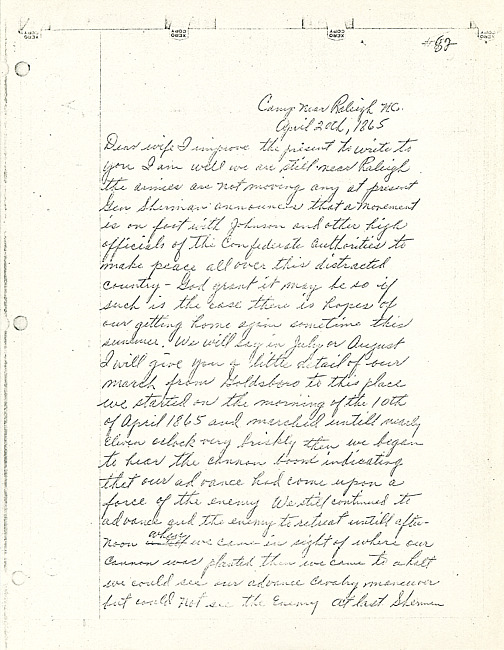 #82
Camp near Raleigh NC.
April 20th, 1865
Dear wife I improve the present to write to
you I am well we are still near Raleigh
the armies are not moving any at present
Gen Sherman announces that a movement
is on foot with Johnson and other high
officials of the Confederate authorities to
make peace all over this distracted
country - God grant it may be so if
such is the case there is hopes of
our getting home again sometime this
summer. We will say in July or August
I will give you a little detail of our
march from Goldsboro to this place
we started on the morning of the 10th
of April 1865 and marched untill nearly
eleven oclock very briskly then we began
to hear the cannon boom indicating
that our advance had come upon a
force of the enemy We still continued to
advance and the enemy to retreat untill after-
noon when we came in sight of where our
cannon was planted then we came to a halt
we could see our advance Cavalry maneuver
but could not see the Enemy at last Sherman